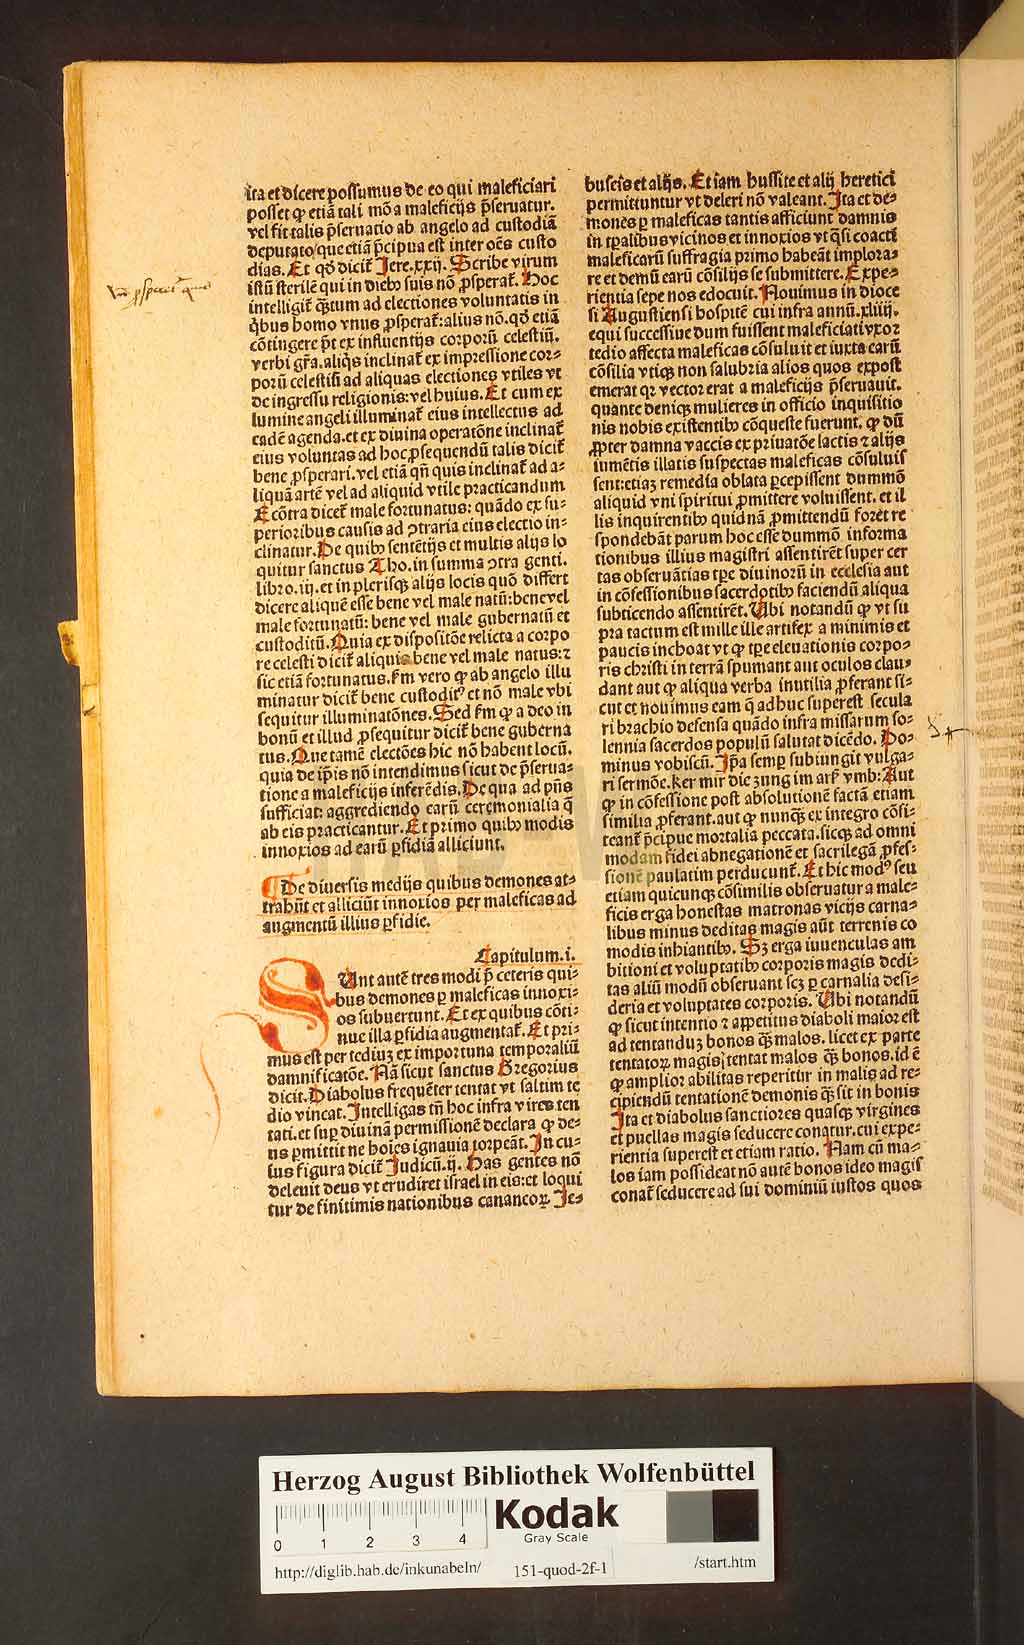 ita et dicere possumus de eo qui maleficiari
posset ꝙ etiā tali mō a maleficijs p̄seruatur.
vel fit talis p̄seruatio ab angelo ad custodiā
deputato/que etiā p̄cipua est inter oēs custo
dias. Et qd̄ dicit̄ Jere.xxij. Scribe virum
istū sterilē qui in dieb⁹ suis nō ꝓsperat̄. Hoc
intelligit̄ qꝫtum ad electiones voluntatis in
q̇bus homo vnus ꝓsperat̄: alius nō. qd̄ etiā
cōtingere pt̄ ex influentijs corporū celestiū.
verbi gr̄a. aliq̇s inclinat̄ ex impressione cor⸗
porū celestiū ad aliquas electiones vtiles vt
de ingressu religionis: vel huius. Et cum ex
lumine angeli illuminat̄ eius intellectus ad
eadē agenda. et ex diuina operatōne inclinat̄
eius voluntas ad hoc ꝓsequendū talis dicit̄
bene ꝓsperari. vel etiā qn̄ quis inclinat̄ ad a⸗
liquā artē vel ad aliquid vtile practicandum
E cōtra dicet̄ male fortunatus: quādo ex su⸗
perioribus causis ad ꝯtraria eius electio in⸗
clinatur. De quib⁹ sentētijs et multis alijs lo
quitur sanctus Tho. in summa ꝯtra genti.
libro.iij. et in plerisqꝫ alijs locis quō differt
dicere aliquē esse bene vel male natū: bene vel
male fortunatū: bene vel male gubernatū et
custoditū. Quia ex dispositōe relicta a corpo
re celesti dicit̄ aliquis bene vel male natus: ⁊
sic etiā fortunatus. s̄m vero ꝙ ab angelo illu
minatur dicit̄ bene custodit⁹ et nō male vbi
sequitur illuminatōnes. Sed s̄m ꝙ a deo in
bonū et illud ꝓsequitur dicit̄ bene guberna
tus. Que tamē electōes hic nō habent locū.
quia de ip̄is nō intendimus sicut de p̄serua⸗
tione a maleficijs inferēdis. De qua ad pn̄s
sufficiat: aggrediendo earū ceremonialia q̄
ab eis practicantur. Et primo quib⁹ modis
innoxios ad earū ꝑfidiā alliciunt.
¶ De diuersis medijs quibus demones at⸗
trahūt et alliciūt innoxios per maleficas ad
augmentū illius ꝑfidie.
Capitulum.i.
SUnt autē tres modi p̄ ceteris qui⸗
bus demones ꝑ maleficas innoxi⸗
os subuertunt. Et ex quibus cōti⸗
nue illa ꝑfidia augmentat̄. Et pri⸗
mus est per tediuꝫ ex importuna temporaliū
damnificatōe. Nā sicut sanctus Gregorius
dicit. Diabolus frequēter tentat vt saltim te
dio vincat. Intelligas tn̄ hoc infra vires ten
tati. et suꝑ diuinā permissionē declara ꝙ de⸗
us ꝑmittit ne hoīes ignauia torpeāt. In cu⸗
ius figura dicit̄ Judicū.ij. Has gentes nō
deleuit deus vt erudiret israel in eis: et loqui
tur de finitimis nationibus cananeoꝝ. Je⸗
buseis et alijs. Etiam hussite et alij heretici
permittuntur vt deleri nō valeant. Ita et de⸗
mones ꝑ maleficas tantis afficiunt damnis
in tꝑalibus vicinos et innoxios vt q̄si coacti
maleficarū suffragia primo habeāt implora⸗
re et demū earū cōsilijs se submittere. Expe⸗
rientia sepe nos edocuit. Nouimus in dioce
si Augustiensi hospitē cui infra annū.xliiij.
equi successiue dum fuissent maleficiati vxor
tedio affecta maleficas cōsuluit et iuxta earū
cōsilia vtiqꝫ non salubria alios quos expost
emerat qꝛ vector erat a maleficijs p̄seruauit.
quante deniqꝫ mulieres in officio inquisitio
nis nobis existentib⁹ cōqueste fuerunt. ꝙ dū
ꝓpter damna vaccis ex priuatōe lactis ⁊ alijs
iumētis illatis suspectas maleficas cōsuluis
sent: etiaꝫ remedia oblata ꝑcepissent dummō
aliquid vni spiritui ꝓmittere voluissent. et il
lis inquirentib⁹ quidnā ꝓmittendū foret re
spondebāt parum hoc esse dummō informa
tionibus illius magistri assentirēt super cer
tas obseruātias tꝑe diuinorū in ecclesia aut
in cōfessionibus sacerdotib⁹ faciendū aliqua
subticendo assentirēt. Ubi notandū ꝙ vt su
pra tactum est mille ille artifex a minimis et
paucis inchoat vt ꝙ tꝑe eleuationis corpo⸗
ris christi in terrā spumant aut oculos clau⸗
dant aut ꝙ aliqua verba inutilia ꝓferant si⸗
cut et nouimus eam q̄ adhuc superest secula
ri brachio defensa quādo infra missarum so⸗
lennia sacerdos populū salutat dicēdo. Do⸗
minus vobiscū. Ip̄a semꝑ subiungit vulga⸗
ri sermōe. ker mir die zung im arß vmb: Aut
ꝙ in cōfessione post absolutionē factā etiam
similia ꝓferant. aut ꝙ nunqꝫ ex integro cōfi⸗
teant̄ p̄cipue mortalia peccata. sicqꝫ ad omni
modam fidei abnegationē et sacrilegā ꝓfes⸗
sionē paulatim perducunt̄. Et hic mod⁹ seu
etiam quicunqꝫ cōsimilis obseruatur a male⸗
ficis erga honestas matronas vicijs carna⸗
libus minus deditas magis aūt terrenis co
modis inhiantib⁹. Sꝫ erga iuuenculas am
bitioni et voluptatib⁹ corporis magis dedi⸗
tas aliū modū obseruant scꝫ ꝑ carnalia desi⸗
deria et voluptates corporis. Ubi notandū
ꝙ sicut intentio ⁊ appetitus diaboli maior est
ad tentanduꝫ bonos qꝫ malos. licet ex parte
tentatoꝝ magis tentat malos qꝫ bonos. id ē
ꝙ amplior abilitas reperitur in malis ad re⸗
cipiendū tentationē demonis qꝫ sit in bonis
Ita et diabolus sanctiores quasqꝫ virgines
et puellas magis seducere conatur. cui expe⸗
rientia superest et etiam ratio. Nam cū ma⸗
los iam possideat nō autē bonos ideo magis
conat̄ seducere ad sui dominiū iustos quos
Herzog August Bibliothek Wolfenbüttel
Kodak
Gray Scale
0 1 2 3 4
http://diglib.hab.de/inkunabeln/ 151-quod-2f-1 /start.htm